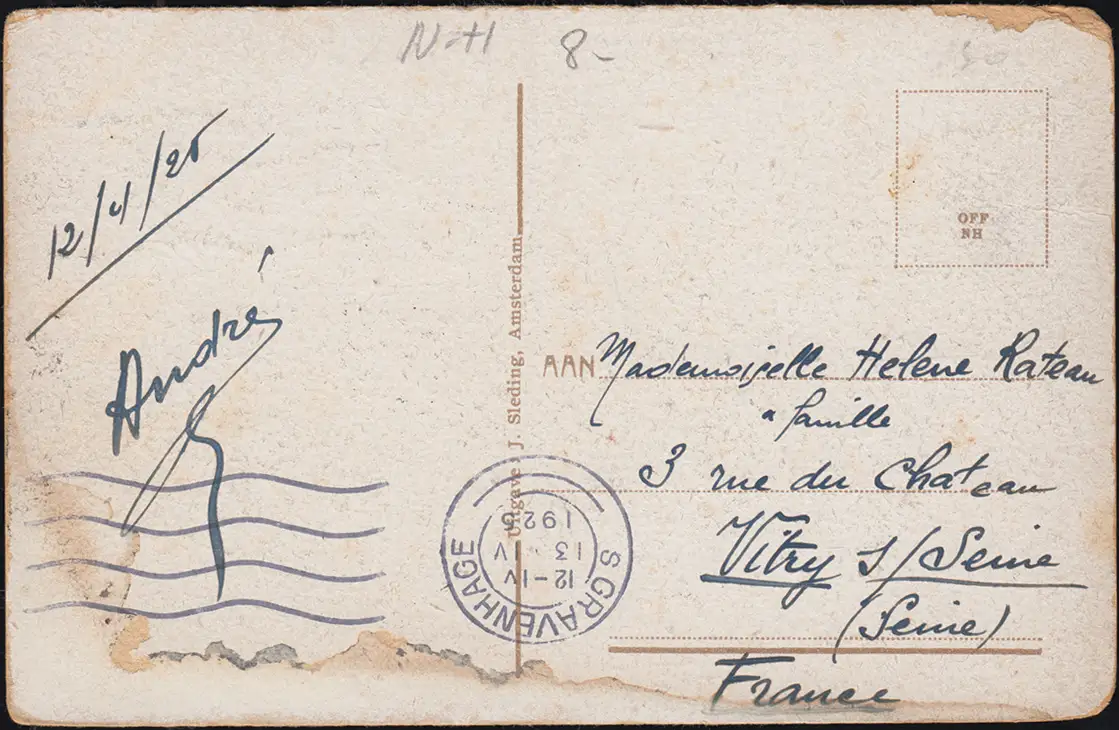 N-H 8-
12/4/25
André
OFF
NH
Uitgave J. Sleding, Amsterdam
AAN Mademoiselle Helene Rateau
& famille
3 rue du Chateau
Vitry s/Seine
(Seine)
France
S GRAVENHAGE
12-IV
13 IV
1925